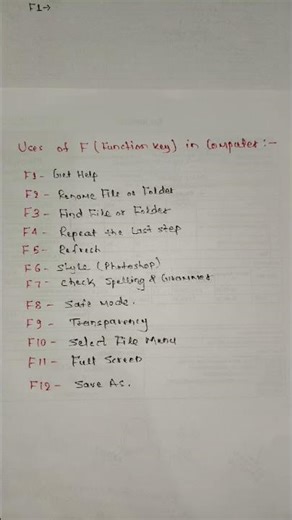 F1→
Uses of F (Function key) in Computer :-
F1 - Get Help
F2 - Rename File or Folder
F3 - Find File or Folder
F4 - Repeat the Last step
F5 - Refresh
F6 - Style (Photoshop)
F7 - Check Spelling & Grammar
F8 - Safe Mode.
F9 - Transparency
F10 - Select File Menu
F11 - Full Screen
F12 - Save As.